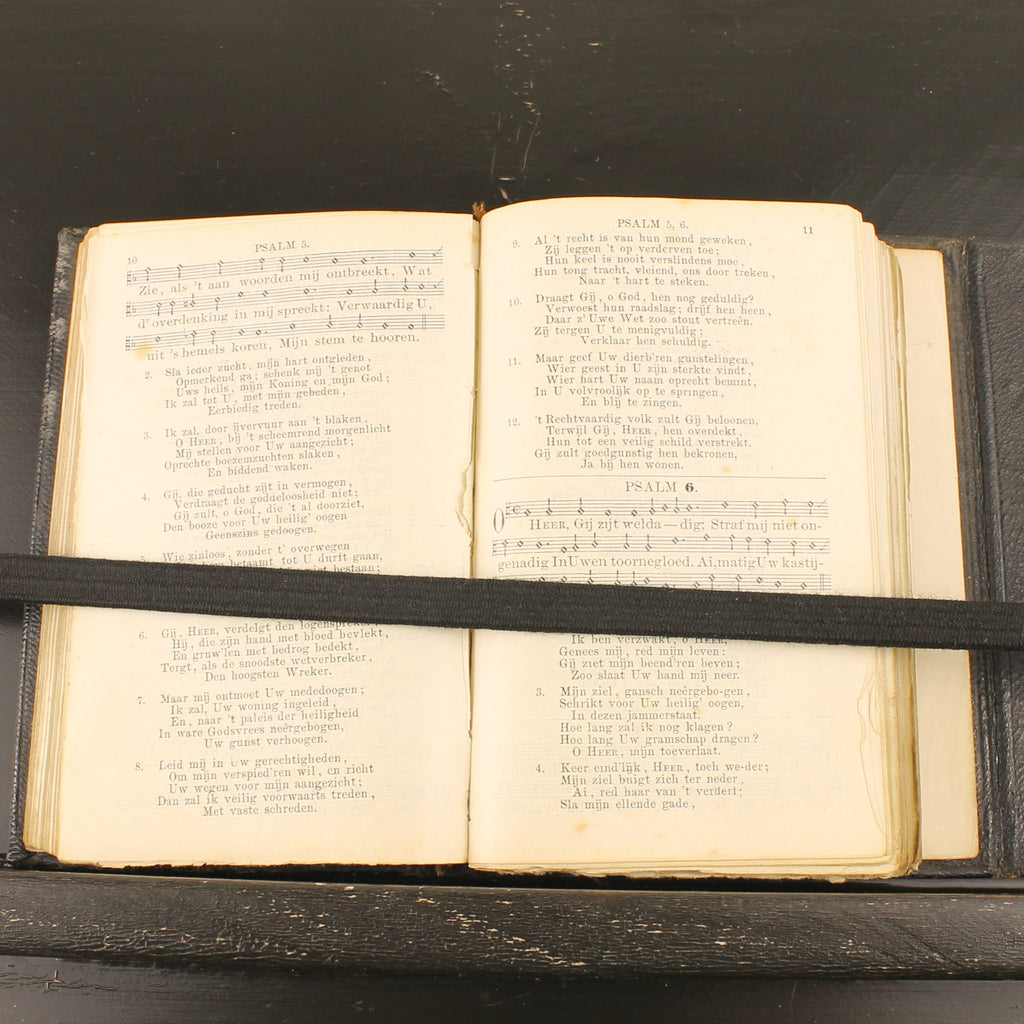 10
PSALM 5.
Zie, als 't aan woorden mij ontbreekt, Wat
d' overdenking in mij spreekt: Verwaardig U,
uit 's hemels koren, Mijn stem te hooren.
2. Sla ieder zucht, mijn hart ontgleden,
Opmerkend ga; schenk mij 't genot
Uws heils, mijn Koning en mijn God;
Ik zal tot U, met mijn gebeden,
Eerbiedig treden.
3. Ik zal, door ijvervuur aan 't blaken,
O HEER, bij 't scheemrend morgenlicht
Mij stellen voor Uw aangezicht;
Oprechte boezemzuchten slaken,
En biddend waken.
4. Gij, die geducht zijt in vermogen,
Verdraagt de goddeloosheid niet;
Gij zult, o God, die 't al doorziet,
Den booze voor Uw heilig' oogen
Geenszins gedoogen.
5. Wie zinloos, zonder t' overwegen
betaamt tot U durft gaan,
niet bestaan;
6. Gij, HEER, verdelgt den logenspreker,
Hij, die zijn hand met bloed bevlekt,
En gruw'len met bedrog bedekt,
Tergt, als de snoodste wetverbreker,
Den hoogsten Wreker.
7. Maar mij ontmoet Uw mededoogen;
Ik zal, Uw woning ingeleid,
En, naar 't paleis der heiligheid
In ware Godsvrees neêrgebogen,
Uw gunst verhoogen.
8. Leid mij in Uw gerechtigheden,
Om mijn verspied'ren wil, en richt
Uw wegen voor mijn aangezicht;
Dan zal ik veilig voorwaarts treden,
Met vaste schreden.
PSALM 5, 6.
11
9. Al 't recht is van hun mond geweken,
Zij leggen 't op verderven toe;
Hun keel is nooit verslindens moe,
Hun tong tracht, vleiend, ons door treken,
Naar 't hart te steken.
10. Draagt Gij, o God, hen nog geduldig?
Verwoest hun raadslag; drijf hen heen,
Daar z' Uwe Wet zoo stout vertreên.
Zij tergen U te menigvuldig;
Verklaar hen schuldig.
11. Maar geef Uw dierb'ren gunstelingen,
Wier geest in U zijn sterkte vindt,
Wier hart Uw naam oprecht bemint,
In U volvroolijk op te springen,
En blij te zingen.
12. 't Rechtvaardig volk zult Gij beloonen,
Terwijl Gij, HEER, hen overdekt,
Hun tot een veilig schild verstrekt.
Gij zult goedgunstig hen bekronen,
Ja bij hen wonen.
PSALM 6.
O HEER, Gij zijt welda—dig; Straf mij niet on-
genadig In Uwen toornegloed. Ai, matig Uw kastij-
Ik ben verzwakt, o HEER,
Genees mij, red mijn leven:
Gij ziet mijn beend'ren beven;
Zoo slaat Uw hand mij neer.
3. Mijn ziel, gansch neêrgebo-gen,
Schrikt voor Uw heilig' oogen,
In dezen jammerstaat.
Hoe lang zal ik nog klagen?
Hoe lang Uw gramschap dragen?
O HEER, mijn toeverlaat.
4. Keer eind'lijk, HEER, toch we-der;
Mijn ziel buigt zich ter neder,
Ai, red haar van 't verderf;
Sla mijn ellende gade,